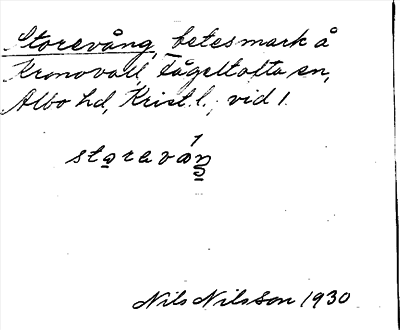 Storevång, betesmark å
Kronovall, Fågeltofta sn,
Albo hd, Krist. l., vid 1.
storavån
Nils Nilsson 1930